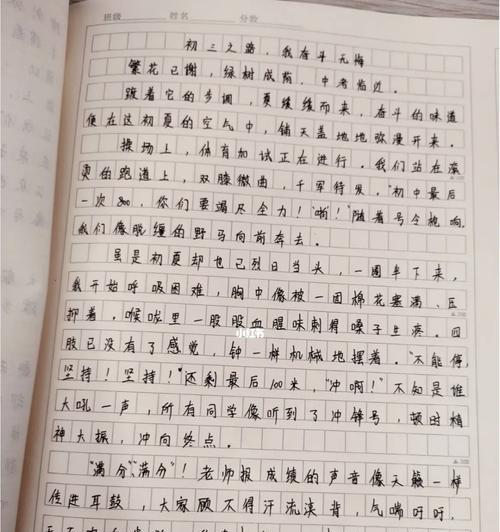 班级 姓名 分数
初三之路，我奋斗无悔
繁花已谢，绿树成荫，中考临近。
踱着它的步调，夏缓缓而来，奋斗的味道
便在这初夏的空气中，铺天盖地地弥漫开来。
操场上，体育加试正在进行。我们站在滚
烫的跑道上，双膝微曲，千军待发，"初中最后
一次800，你们要竭尽全力！"啪！"随着号令枪响，
我们像脱缰的野马向前奔去。
虽是初夏却也已烈日当头，一圈半下来，
我开始呼吸困难，胸中像被一团棉花塞满、压
抑着，喉咙里一股股血腥味刺得嗓子生疼。四
肢已没有了感觉，钟一样机械地摆着。"不能停，
坚持！坚持！"还剩最后100米，"冲啊！"不知是谁
大吼一声，所有同学像听到了冲锋号，顿时精
神大振，冲向终点。
"满分""满分"！老师报成绩的声音像天籁一样
传进耳鼓，大家顾不得汗流浃背，气喘吁吁，
小红书